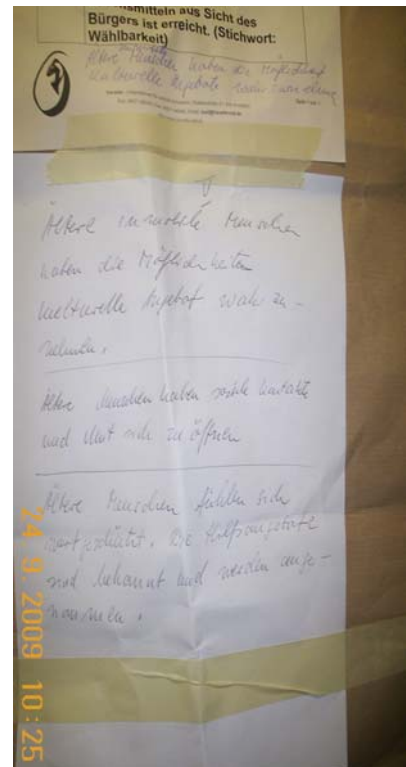 nsmitteln aus Sicht des
Bürgers ist erreicht. (Stichwort:
Wählbarkeit)
Ältere Menschen haben die Möglichkeit
kulturelle Angebote
Ältere immobile Menschen
haben die Möglichkeiten
kulturelle Angebot wah zu-
nehmen.
Ältere Menschen haben soziale Kontakte
und Mut sich zu öffnen
Ältere Menschen fühlen sich
wertgeschätzt. Die Hilfsangebote
sind bekannt und werden ange-
nommen.
24. 9. 2009 10:25